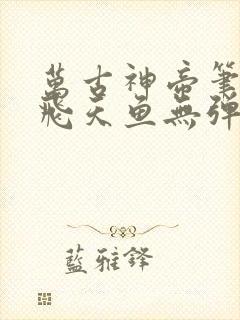 萬古神帝筆
飛天魚無彈
藍雅鋒